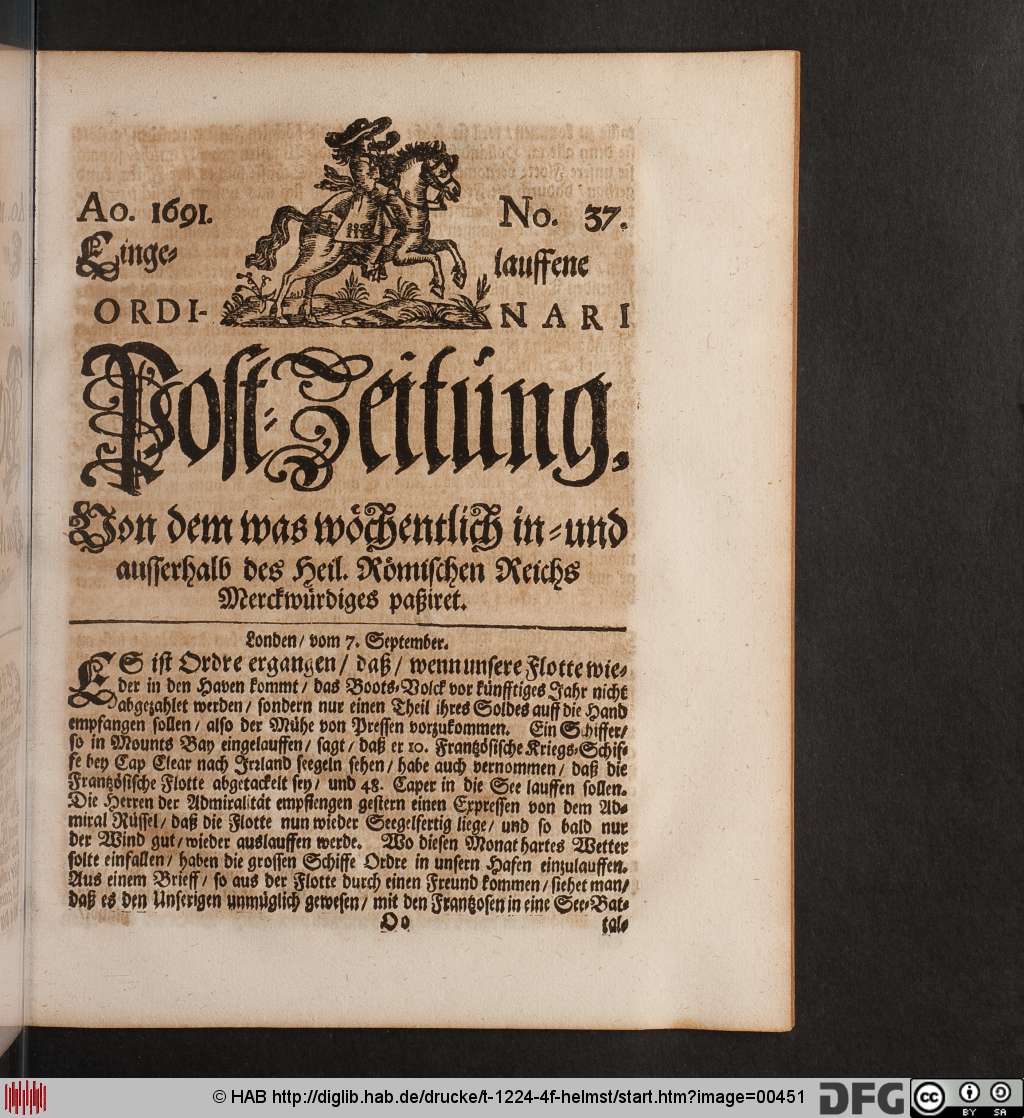 Ao. 1691. No. 37.
Einge- lauffene
ORDI- NARI
Post-Zeitung.
Von dem was wöchentlich in- und
ausserhalb des Heil. Römischen Reichs
Merckwürdiges paßiret.
Londen/ vom 7. September.
ES ist Ordre ergangen/ daß/ wenn unsere Flotte wie-
der in den Haven kommt/ das Boots-Volck vor künfftiges Jahr nicht
abgezahlet werden/ sondern nur einen Theil ihres Soldes auff die Hand
empfangen sollen/ also der Mühe von Pressen vorzukommen. Ein Schiffer/
so in Mounts Bay eingelauffen/ sagt/ daß er 10. Frantzösische Kriegs-Schif-
fe bey Cap Clear nach Irrland seegeln sehen/ habe auch vernommen/ daß die
Frantzösische Flotte abgetackelt sey/ und 48. Caper in die See lauffen sollen.
Die Herren der Admiralität empfiengen gestern einen Expressen von dem Ad-
miral Rüssel/ daß die Flotte nun wieder Seegelfertig liege/ und so bald nur
der Wind gut/ wieder auslauffen werde. Wo diesen Monat hartes Wetter
solte einfallen/ haben die grossen Schiffe Ordre in unsern Hafen einzulauffen.
Aus einem Brieff/ so aus der Flotte durch einen Freund kommen/ siehet man/
daß es den Unserigen unmüglich gewesen/ mit den Frantzosen in eine See-Bat-
Oo tal-
© HAB http://diglib.hab.de/drucke/t-1224-4f-helmst/start.htm?image=00451
DFG
cc
BY SA